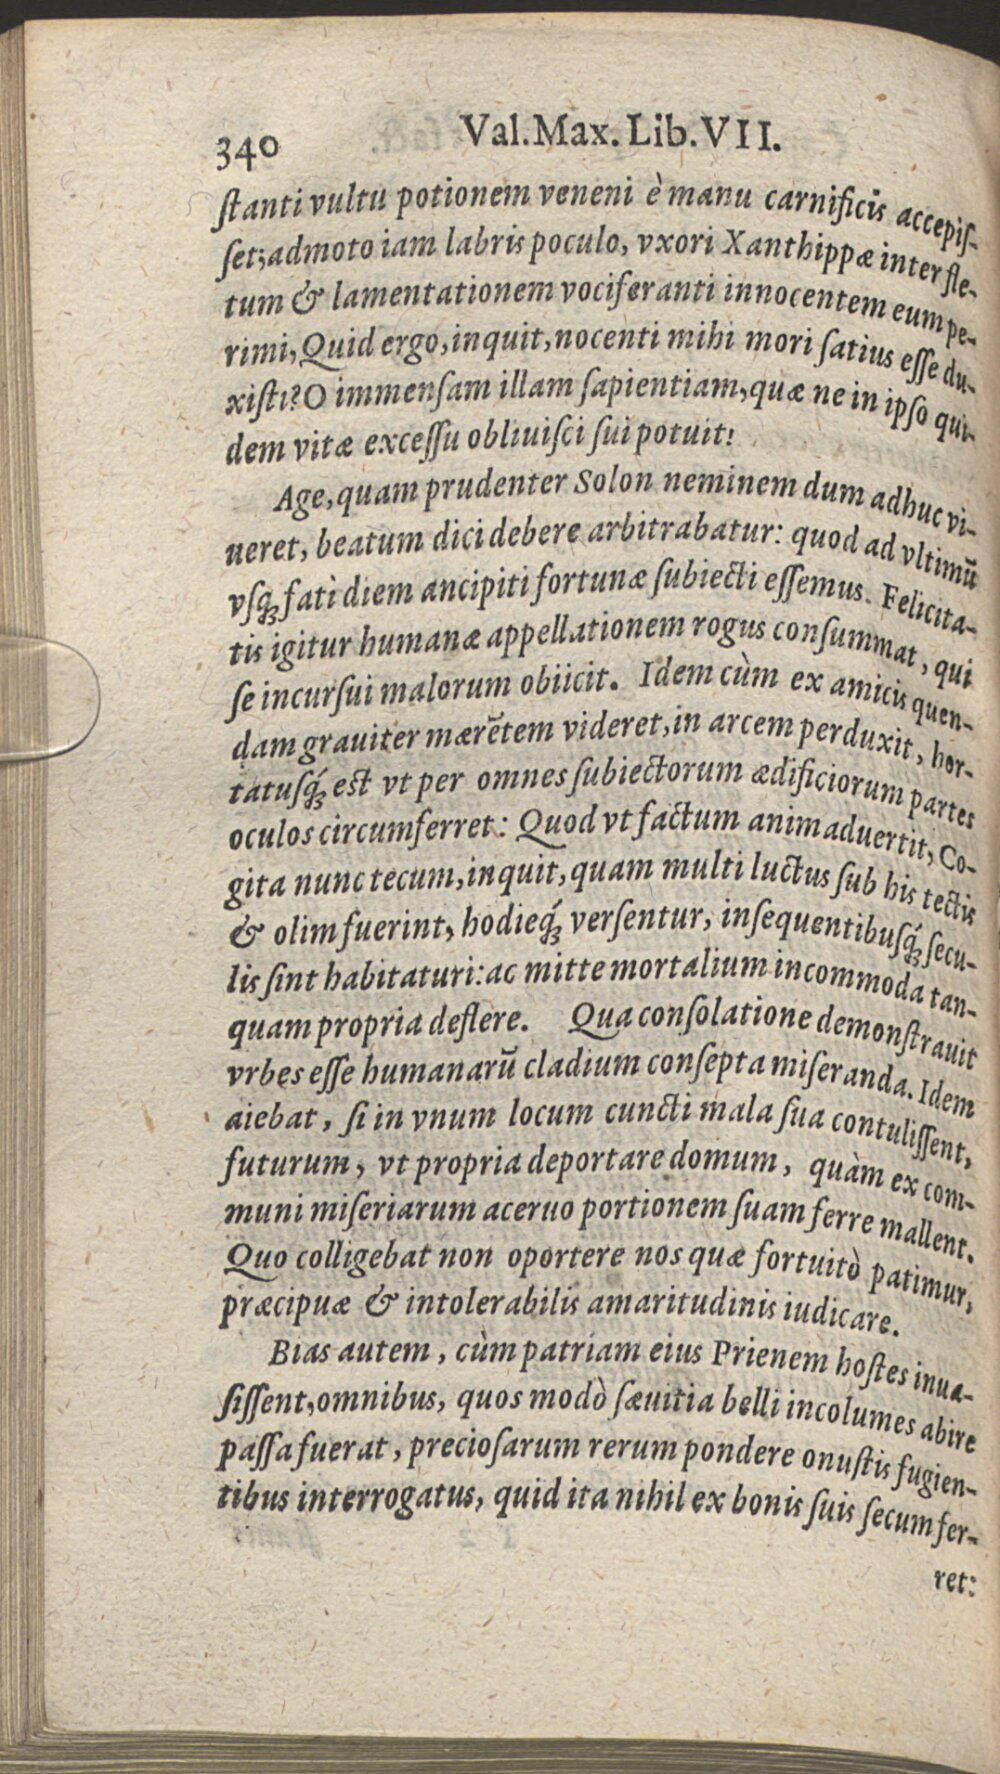 340 Val. Max. Lib. VII.
ſtanti vultu potionem veneni è manu carnificis accepiſ-
ſet; admoto iam labris poculo, vxori Xanthippæ inter fle-
tum & lamentationem vociferanti innocentem eum pe-
rimi, Quid ergo, inquit, nocenti mihi mori ſatius eſſe du-
xiſti? O immenſam illam ſapientiam, quæ ne in ipſo qui-
dem vitæ exceſſu obliuiſci ſui potuit!
Age, quam prudenter Solon neminem dum adhuc vi-
ueret, beatum dici debere arbitrabatur: quod ad vltimũ
vſq́ꝫ fati diem ancipiti fortunæ ſubiecti eſſemus. Felicita-
tis igitur humanæ appellationem rogus conſummat, qui
ſe incurſui malorum obiicit. Idem cùm ex amicis quen-
dam grauiter mærẽtem videret, in arcem perduxit, hor-
tatuſq́ꝫ est vt per omnes ſubiectorum ædificiorum partes
oculos circumferret: Quod vt factum animaduertit, Co-
gita nunc tecum, inquit, quam multi luctus ſub his tectis
& olim fuerint, hodieq́ꝫ verſentur, inſequentibuſq́ꝫ ſecu-
lis ſint habitaturi: ac mitte mortalium incommoda tan-
quam propria deflere. Qua conſolatione demonſtrauit
vrbes eſſe humanarũ cladium conſepta miſeranda. Idem
aiebat, ſi in vnum locum cuncti mala ſua contuliſſent,
futurum, vt propria deportare domum, quàm ex com-
muni miſeriarum aceruo portionem ſuam ferre mallent.
Quo colligebat non oportere nos quæ fortuitò patimur,
præcipuæ & intolerabilis amaritudinis iudicare.
Bias autem, cùm patriam eius Prienem hoſtes inua-
ſiſſent, omnibus, quos modò ſæuitia belli incolumes abire
paſſa fuerat, precioſarum rerum pondere onuſtis fugien-
tibus interrogatus, quid ita nihil ex bonis ſuis ſecum fer-
ret: